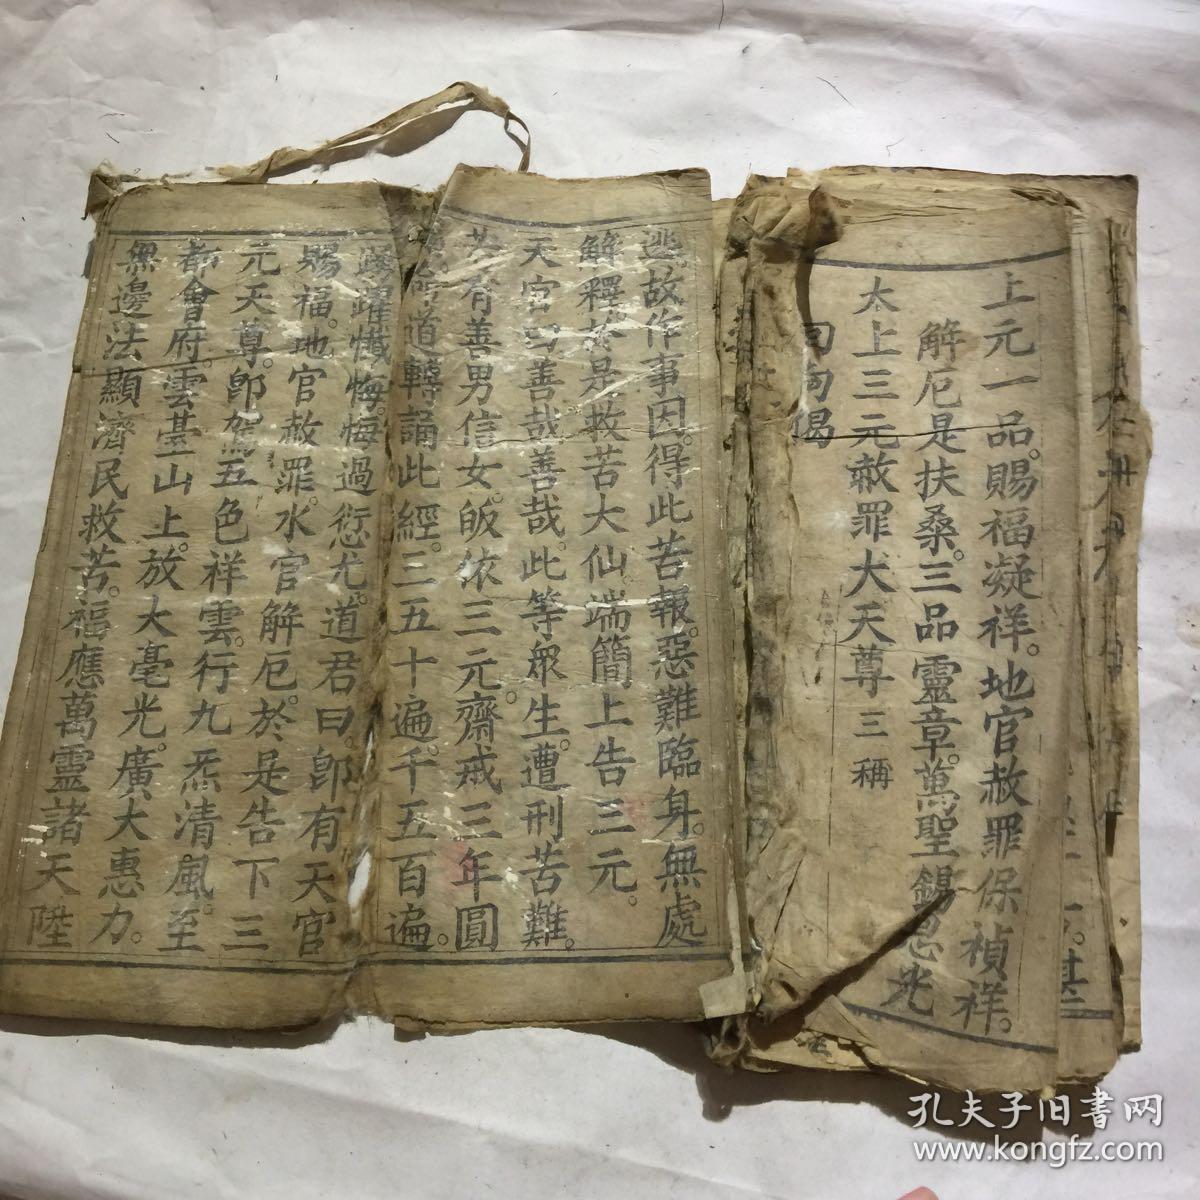 上元一品。賜福凝祥。地官赦罪保禎祥。
解厄是扶桑。三品靈章。萬聖錫恩光
太上三元赦罪大天尊 三稱
向偈
逃。故作事因。得此苦報。惡難臨身。無處
解釋。於是救苦大仙。端簡上告三元。
天官曰善哉善哉。此等衆生。遭刑苦難。
若有善男信女。皈依三元。齋戒三年。圓
道轉誦此經。三五十遍。千五百遍。
踴躍懺悔。悔過愆尤。道君曰。即有天官
賜福。地官赦罪。水官解厄。於是告下三
元天尊。即駕五色祥雲。行九炁清風。至
都會府。雲臺山上。放大毫光。廣大惠力。
無邊法顯。濟民救苦。福應萬靈。諸天陞
孔夫子旧书网
www.kongfz.com